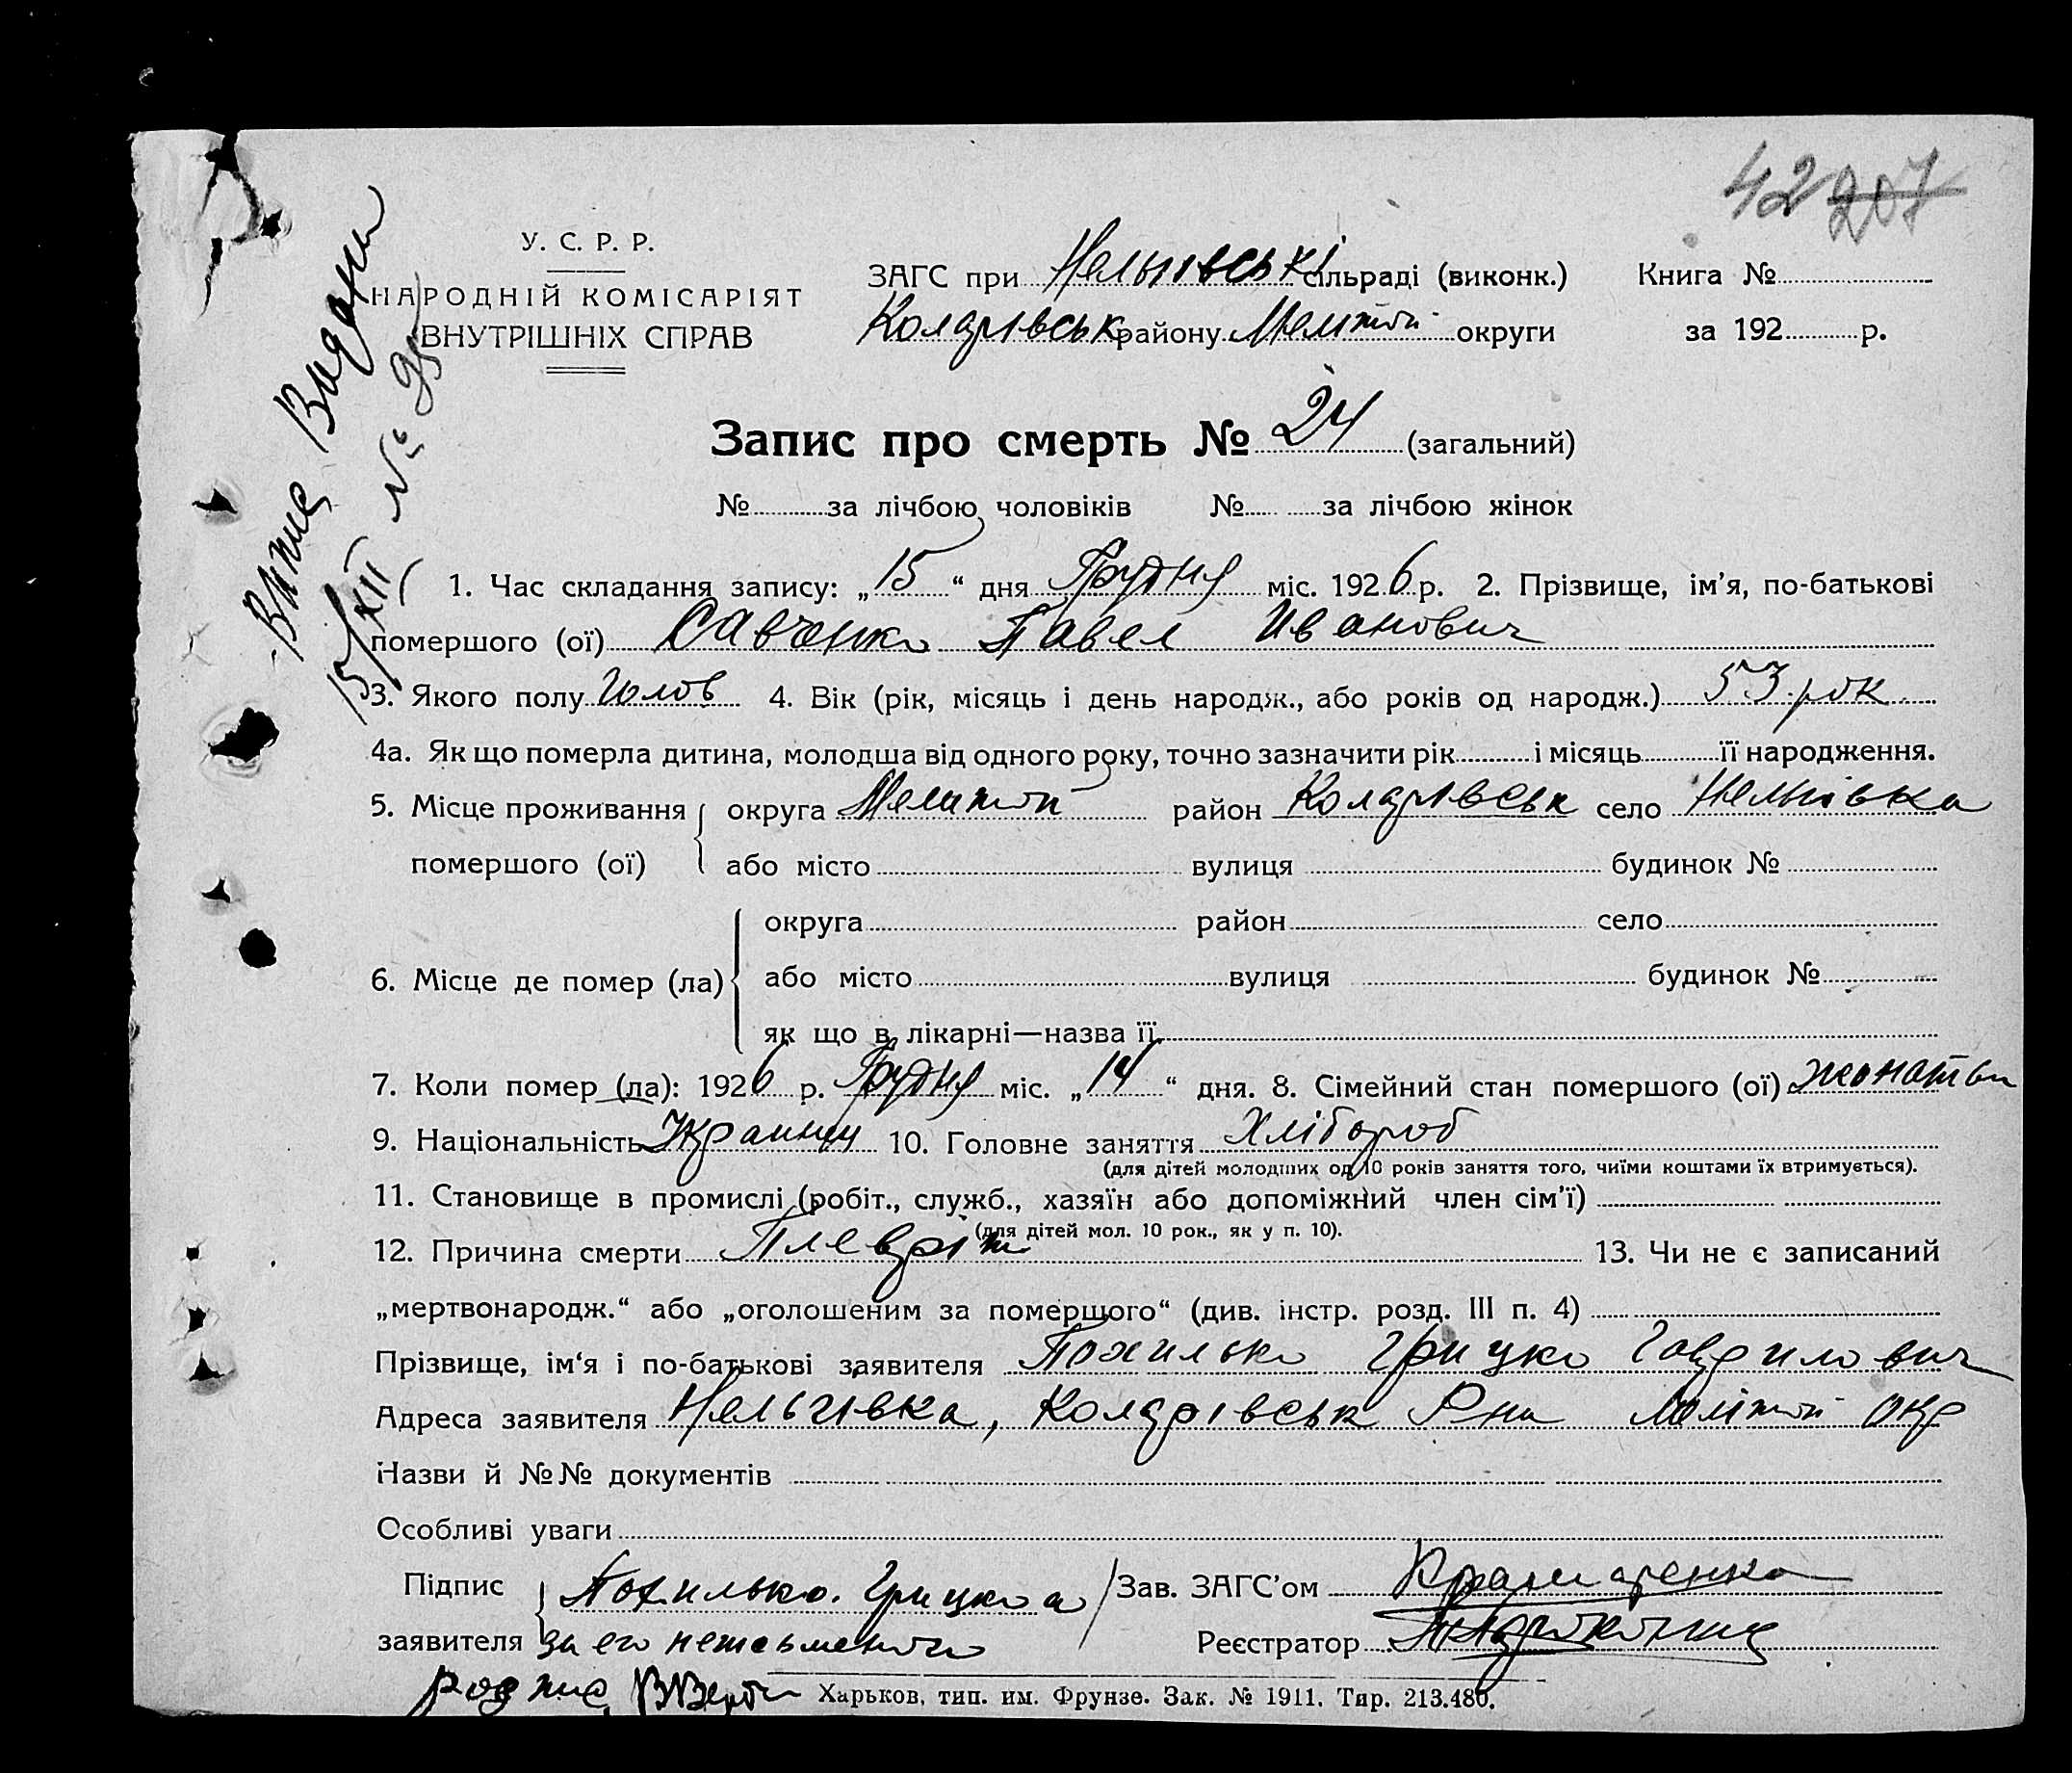 42 207
У. С. Р. Р.
НАРОДНІЙ КОМІСАРІЯТ
ВНУТРІШНІХ СПРАВ
ЗАГС при Нельгівські сільраді (виконк.) Книга №
Коларівськ району Меліттоп округи за 192 р.
Випис Видани
15/XII № 95
Запис про смерть № 24 (загальний)
№ за лічбою чоловіків № за лічбою жінок
1. Час складання запису: „15“ дня Грудня міс. 1926 р. 2. Прізвище, ім’я, по-батькові
помершого (ої) Савченко Павел Иванович
3. Якого полу Чолов 4. Вік (рік, місяць і день народж., або років од народж.) 53 рок.
4а. Як що померла дитина, молодша від одного року, точно зазначити рік і місяць її народження.
5. Місце проживання округа Мелитоп район Коларівськ село Нельгівка
помершого (ої) або місто вулиця будинок №
округа район село
6. Місце де помер (ла) або місто вулиця будинок №
як що в лікарні—назва її
7. Коли помер (ла): 1926 р. Грудня міс. „14“ дня. 8. Сімейний стан помершого (ої) жонатви
9. Національність Украинец 10. Головне заняття Хлібороб
(для дітей молодших од 10 років заняття того, чиїми коштами їх втримується).
11. Становище в промислі (робіт., служб., хазяїн або допоміжний член сім’ї)
(для дітей мол. 10 рок., як у п. 10).
12. Причина смерти Плевріт 13. Чи не є записаний
„мертвонародж.“ або „оголошеним за померщого“ (див. інстр. розд. III п. 4)
Прізвище, ім‘я і по-батькові заявителя Похилько Грицко Гаврилович
Адреса заявителя Нельгівка, Коларівськ Рна Меліттоп окр
Назви й №№ документів
Особливі уваги
Підпис Похилько. Грицко а Зав. ЗАГС’ом Крамаренко
заявителя за его Реєстратор
Харьков, тип. им. Фрунзе. Зак. № 1911. Тир. 213.480.